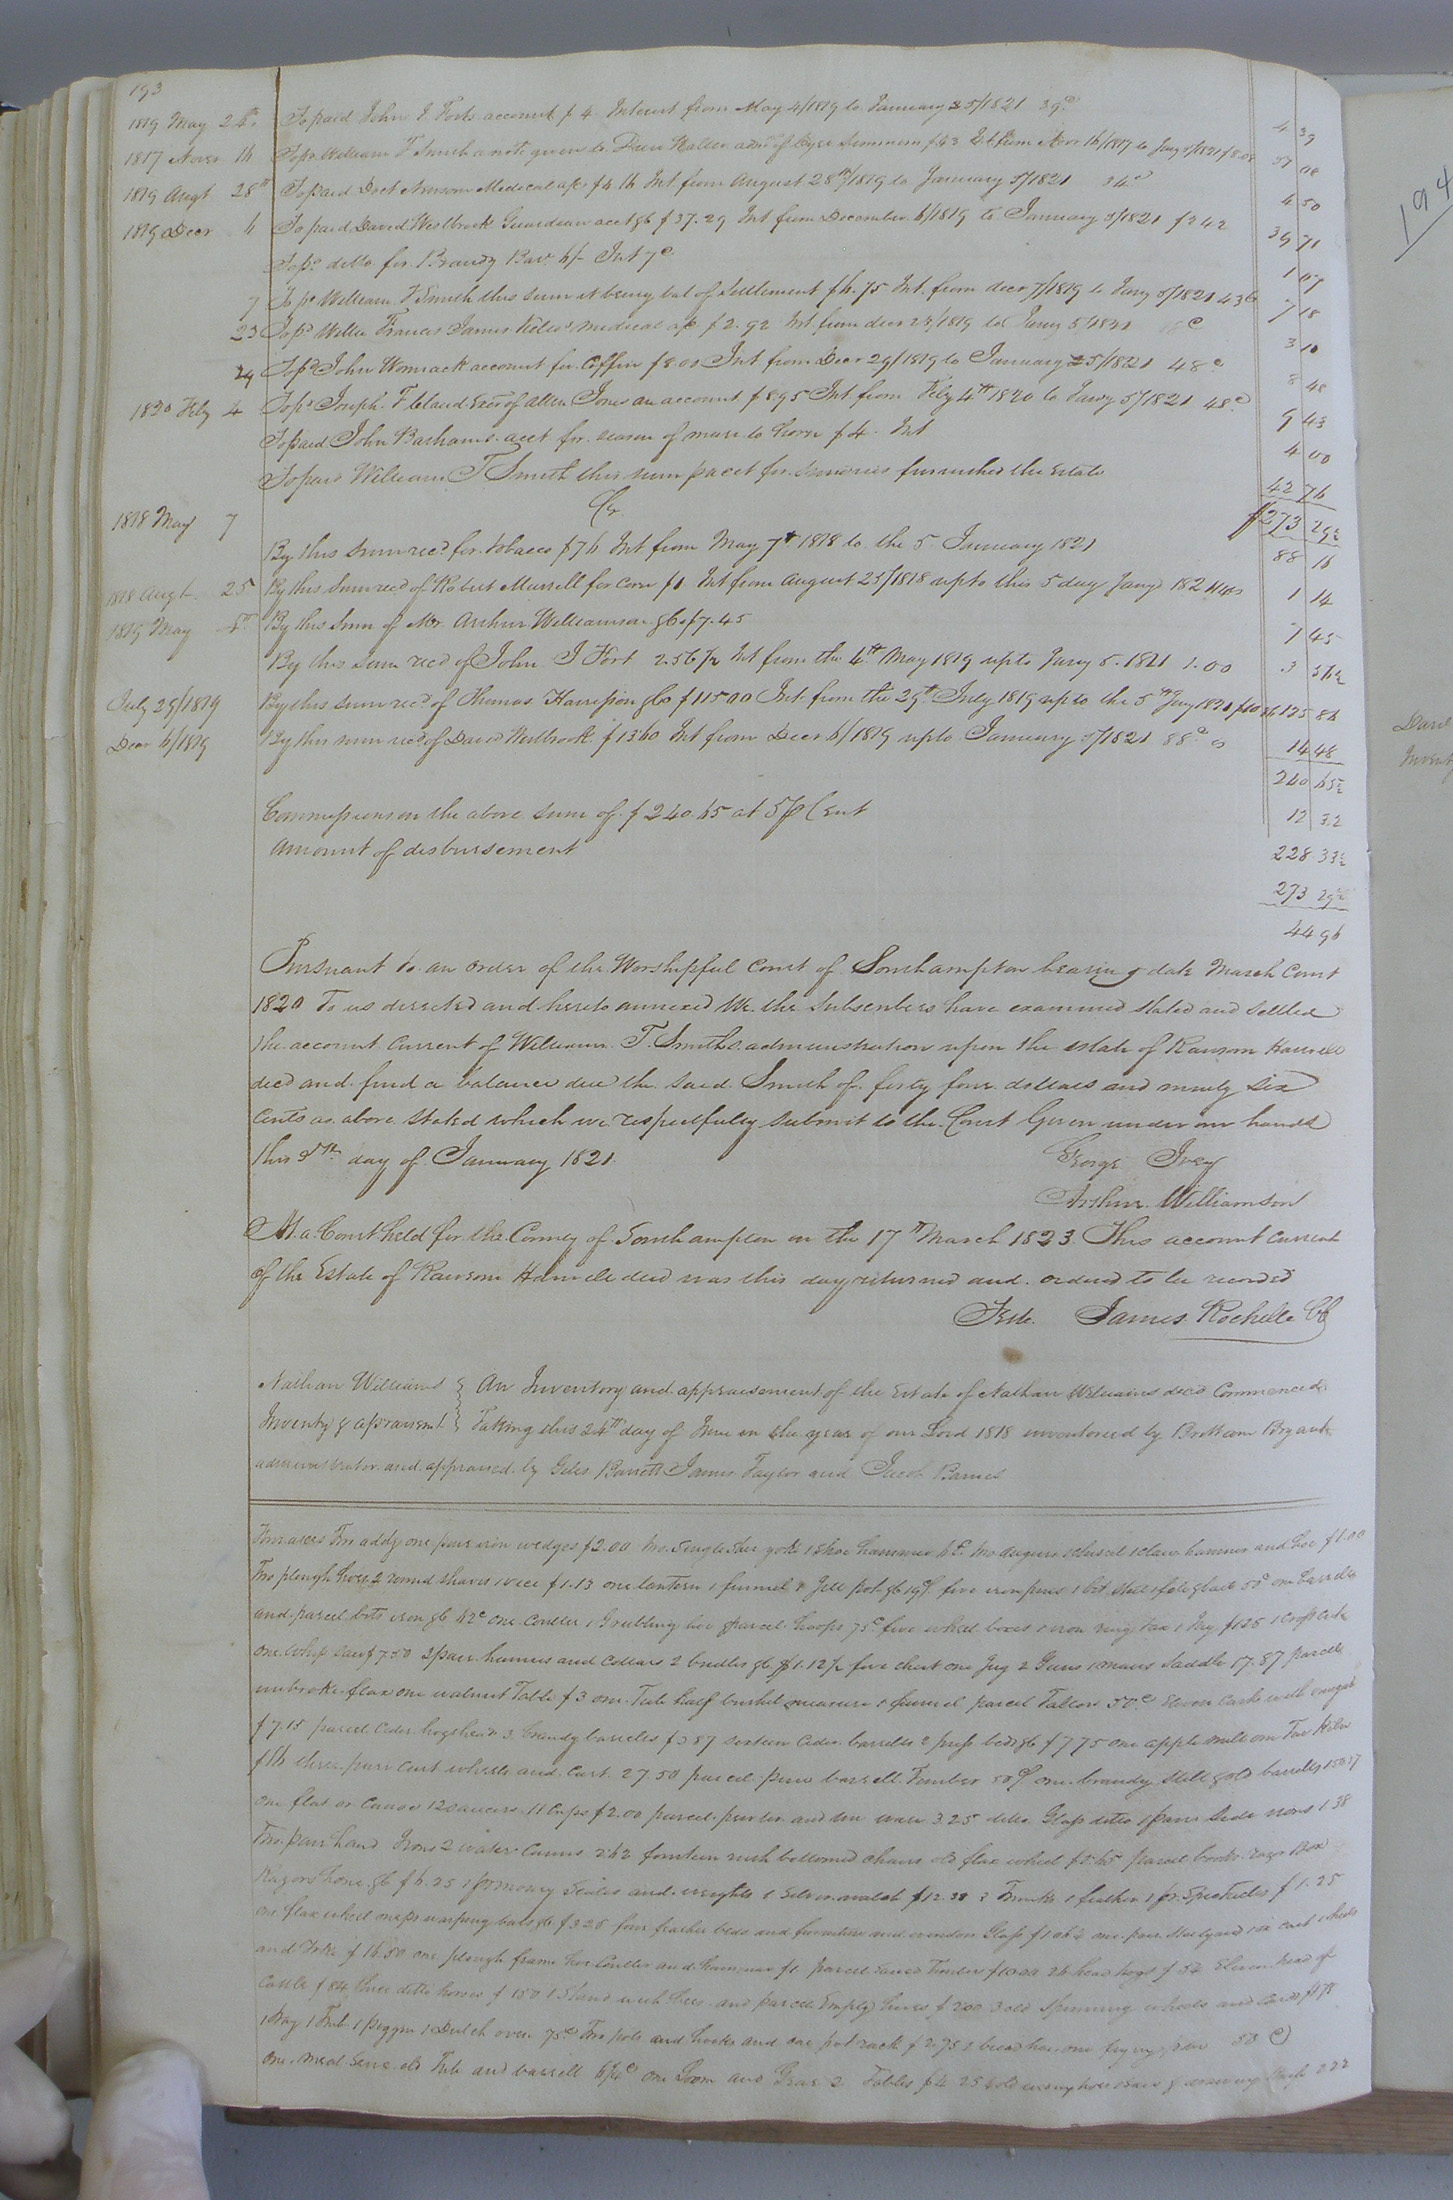 193
1819 May 24th To paid John J Forts account $4 Interest from May 4/1819 to January 5/1821 39c 4 39
1817 Novr 16 To pd William T Smith a note given to Drew admr of $43 Int from Novr 16/1817 to Jany 5/1821 $8.08 51 08
1819 Augt 28th To paid Doct Newsom Medical a/c $4.16 Int from August 28th/1819 to January 5/1821 34c 4 50
1819 Decr 6 To paid David Westbrook Guardian acct gb $37.29 Int from December 6/1819 to January 5/1821 $2 42 39 71
To pd ditto for Brandy 6/ Int 7c 1 07
7 To pd William T Smith this sum it being bal of Settlement $6.75 Int from decr 7/1819 to Jany 5/1821 43c 7 18
23 To pd Willie Francis James medical a/c $2.92 Int from decr 23/1819 to Jany 5/1821 18c 3 10
29 To pd John Womack account for Coffin $8.00 Int from Decr 29/1819 to January 5/1821 48c 8 48
1820 Feby 4 To pd Joseph T Cland Exor of Allen Jones an account $8.95 Int from Feby 4th 1820 to Jany 5/1821 48c 9 43
To paid John Barhams acct for season of mare to horse $4 Int 4 00
To paid William T Smith this sum p acct for sundries furnished the Estate 42 76
Cr $273 29½
1818 May 7 By this sum recd for tobacco $76 Int from May 7th 1818 to the 5 January 1821 88 16
1818 Augt 25 By this sum recd of Robert Murrell for Corn $1 Int from August 25/1818 up to this 5 day Jany 1821 14cs 1 14
1819 May 4th By this sum of Mr Arthur Williamson gb $7.45 7 45
By this sum recd of John J Fort 2.56½ Int from the 4th May 1819 up to Jany 5 1821 1.00 3 56½
July 29/1819 By this sum recd of Thomas Harrison gb $115 00 Int from the 29th July 1819 up to the 5th Jany 1821 $10 86 125 86
Decr 6/1819 By this sum recd of David Westbrook $13 60 Int from Decr 6/1819 up to January 5/1821 88cs 14 48
240 65½
Commissions on the above sum of $240.65 at 5 p Cent 12 32
Amount of disbursement 228 33½
273 29½
44 96
Pursuant to an order of the Worshipful Court of Southampton bearing date March Court
1820 To us directed and hereto annexed We the Subscribers have examined stated and settled
the account Current of William T. Smiths administration upon the estate of Ransom Harvill
decd and find a balance due the said Smith of forty four dollars and ninety six
Cents as above stated which we respectfully submit to the Court Given under our hands
this 5th day of January 1821. George Ivey
Arthur Williamson
At a Court held for the County of Southampton on the 17th March 1823 This account Current
of the Estate of Ransom Harvill decd was this day returned and ordered to be recorded
Teste James Rochelle CC
Nathan Williams } An Inventory and appraisement of the Estate of Nathan Williams decd Commenced
Inventy & apraisemt } Taking this 24th day of June in the year of our Lord 1818 inventoried by Britham Bryant
administrator and appraised by Giles Barrett James Taylor and Jacob Barnes
Two axes Two addz one pair iron wedges $2.00 two Single tier yoke 1 shoe hammer 6c two augurs 1 chisel 1 claw hammer and hoe $1.00
Two plough hoes 2 round shaves 1 vice $1.13 one lantern 1 funnel & Jill pot gb 19c five iron 1 bit 50c one barrel
and parcel bits iron gb 42c one Coulter 1 Grubbing hoe parcel hoops 75c five wheel boxes 1 iron ring Tax 1 Keg $1.25 1 cross cut
one Whip saw $7.50 2 pair hames and Collars 2 bridles gb $1.12½ five chest one Jug 2 Guns 1 mans Saddle 17.87 parcel
unbroke flax one walnut Table $3 one Tub half bushel measure 1 funnel parcel Tallow 50c Eleven Casks with vinegar
$7.15 parcel Cider hogshead 3 brandy barrells $3 87 sixteen Cider barrells & press beds gb $7 75 one apple mill one Tar Kiln
$16 three pair Cart wheels and Cart 27.50 parcel pine barrell Timber 50c one brandy Still & old barrells
one flat or Canoe 12 saucers 11 Cups $2.00 parcel pewter and tin ware 3.25 ditto Glass ditto 1 pair Side irons 1 38
Two pair hand Irons 2 water Canns 2.62 fourteen rush bottomed chairs old flax wheel $5.65 parcel books rags Box
Razors hone gb $6.25 1 pr money Scales and weights 1 Silver watch $12.38 3 Trunks 1 feather 1 pr Spectacles $1.25
one flax wheel one pr warping bars gb $3 25 four feather beds and furniture and window Glass one pair Stealyard 1 ox cart wheels
and Yoke $16.50 one plough frame hoe Coulter and hammer $1 parcel Sawed Timber $10.00 26 head hogs $54 Eleven head of
Cattle $84 three ditto horses $150 1 Stand with bees and parcel Empty hives $2.00 3 old Spinning wheels and Cards
1 Tray 1 Tub 1 piggin 1 Dutch oven 75c Two pots and hooks and one pot rack $2.75 1 bread hoe one frying pan 50c
one meal Seive old Tub and barrell one Loom and Gear 2 Tables $4 25
194
David
Invent